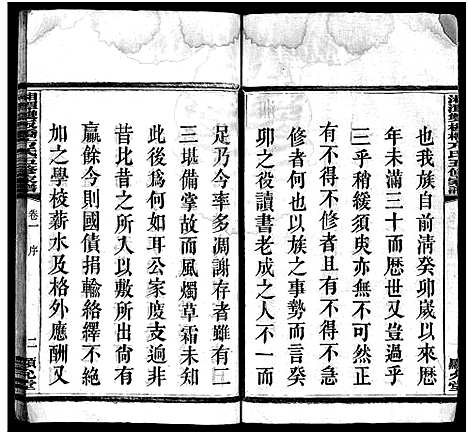 也我族自前清癸卯歲以來歷
年未滿三十而歷世又豈過乎
三乎稍緩須臾亦無不可然正
有不得不修者又有不得不急
修者何也以族之事勢而言癸
卯之役讀書老成之人不一而
足乃今率多凋謝存者雖有二
三堪備掌故而風燭草霜未知
此後爲何如耳公家度支逈非
昔日所入以敷所出尙有
贏餘今則國債捐輸絡繹不絶
加之學校薪水及格外應酬又
卷一 序
二